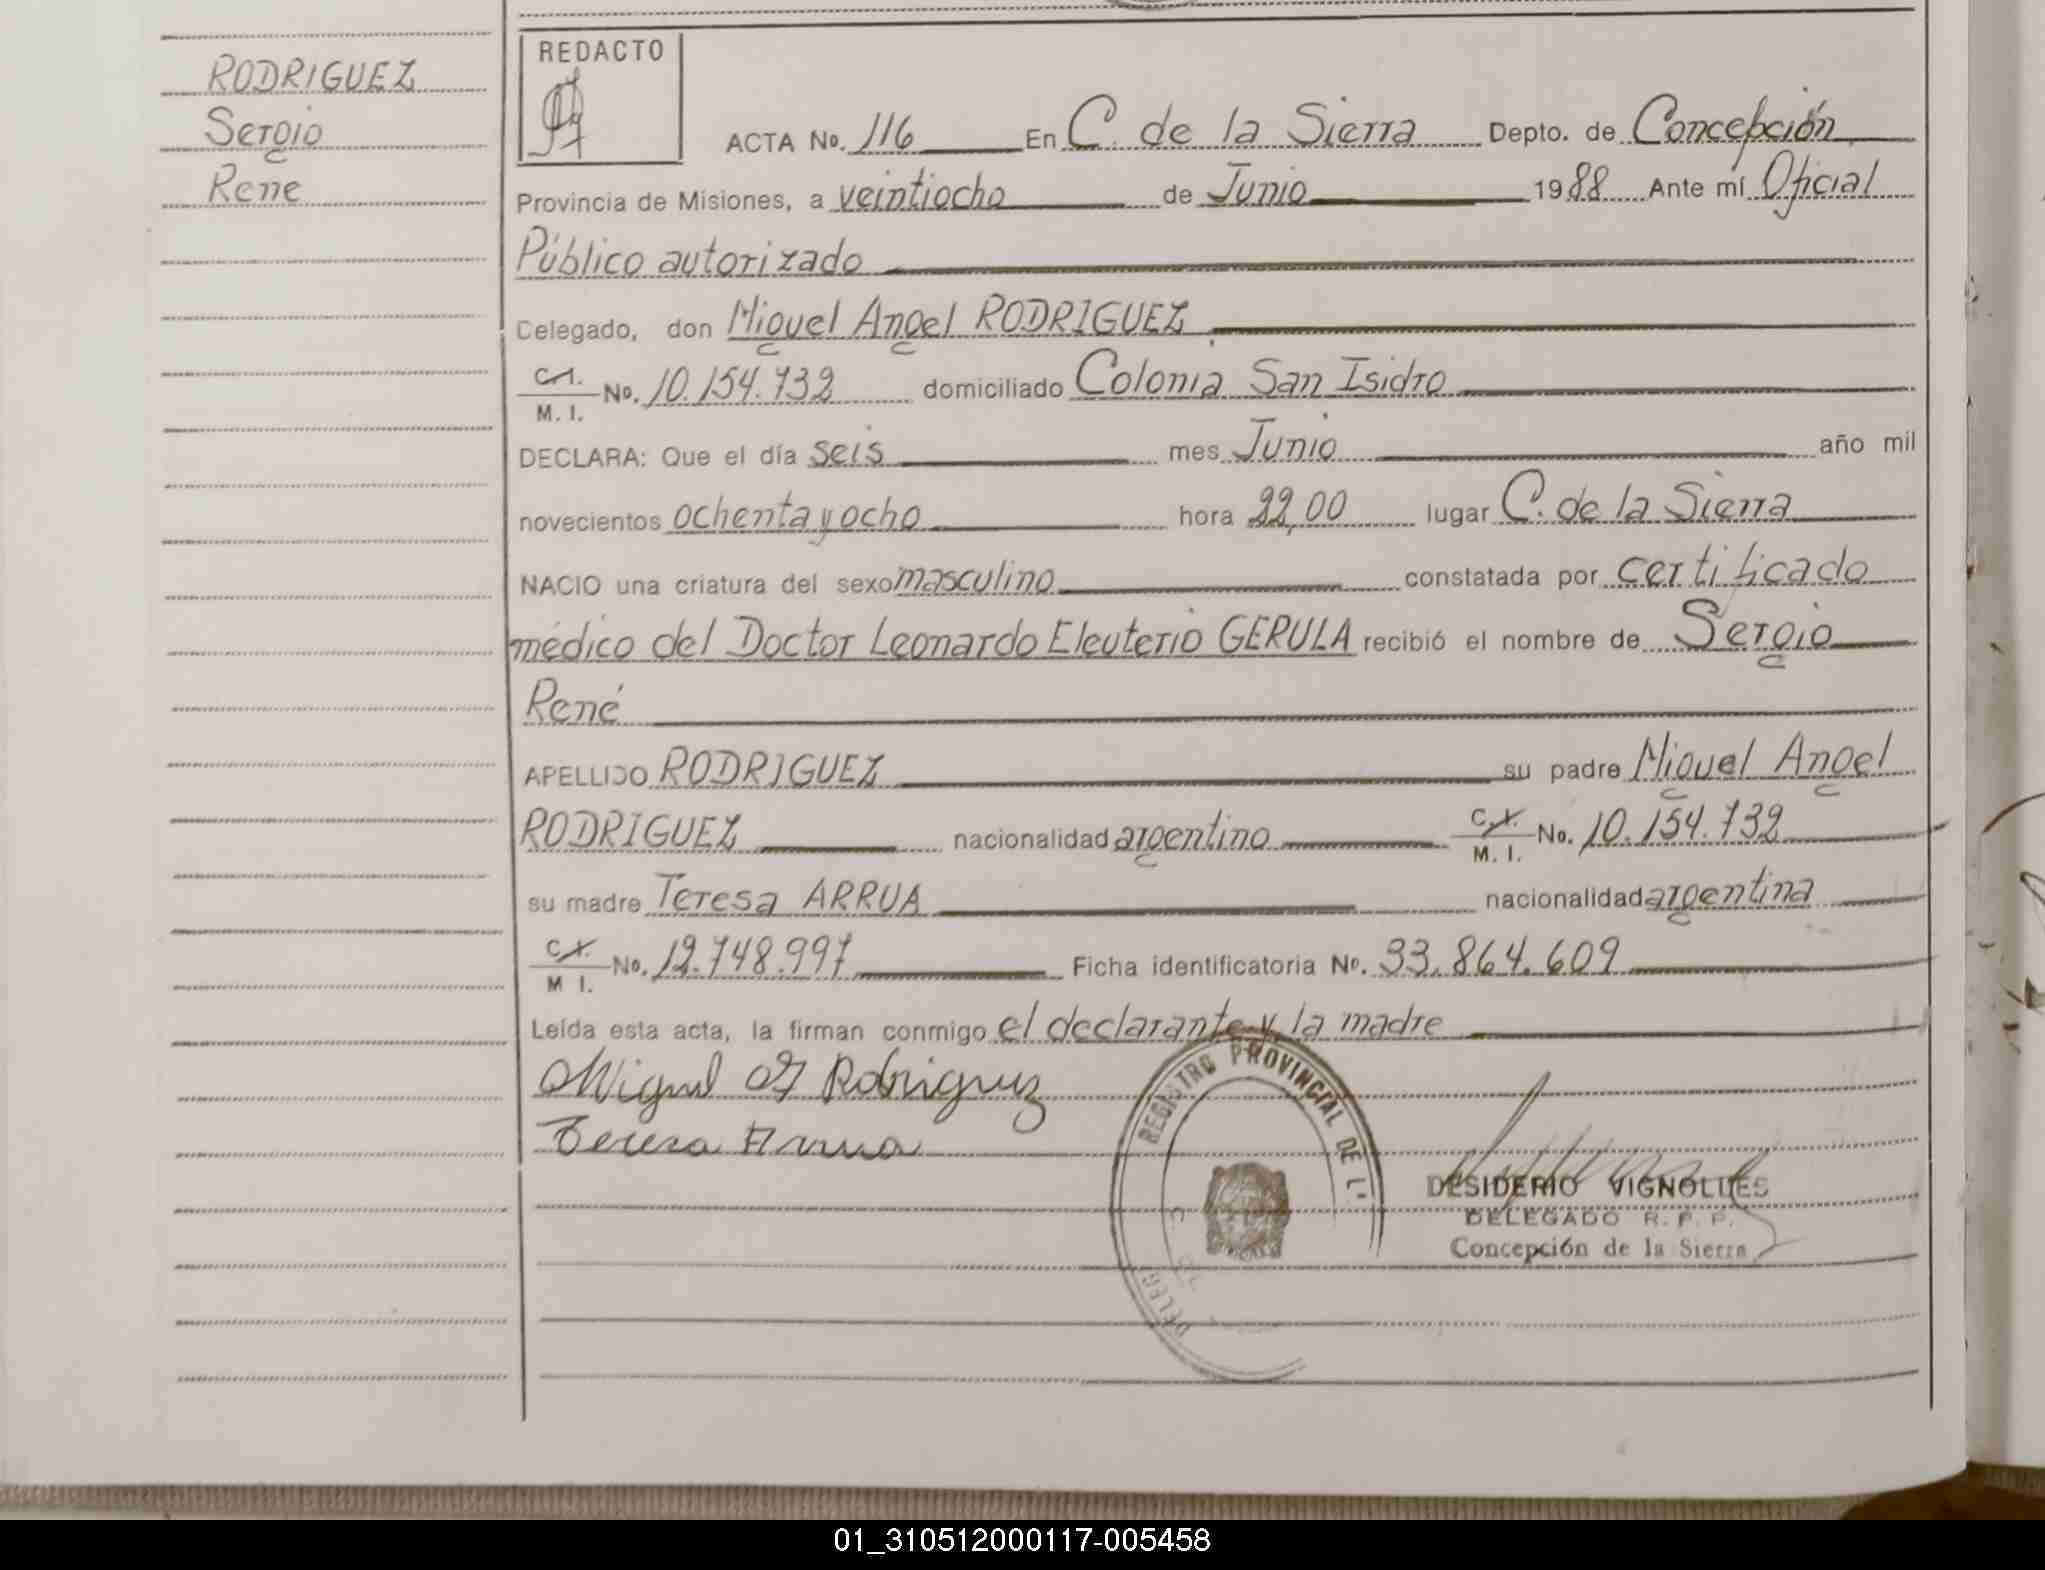 RODRIGUEZ
Sergio
Rene
REDACTO
ACTA No. 116 En C. de la Sierra Depto. de Concepción
Provincia de Misiones, a veintiocho de Junio 1988 Ante mí Oficial
Público autorizado
Celegado, don Miguel Angel RODRIGUEZ
C.I. M. I. No. 10.154.732 domiciliado Colonia San Isidro
DECLARA: Que el día seis mes Junio año mil
novecientos ochenta y ocho hora 22,00 lugar C. de la Sierra
NACIO una criatura del sexo masculino constatada por certificado
médico del Doctor Leonardo Eleuterio GERULA recibió el nombre de Sergio
René
APELLIDO RODRIGUEZ su padre Miguel Angel
RODRIGUEZ nacionalidad argentino C.I. M. I. No. 10.154.732
su madre Teresa ARRUA nacionalidad argentina
C.I. M I. No. 12.748.997 Ficha identificatoria No. 33.864.609
Leída esta acta, la firman conmigo el declarante y la madre
Miguel A Rodriguez
Teresa Arrua
REGISTRO PROVINCIAL DE L
DESIDERIO VIGNOLLES
DELEGADO R. P. P.
Concepción de la Sierra
01_310512000117-005458